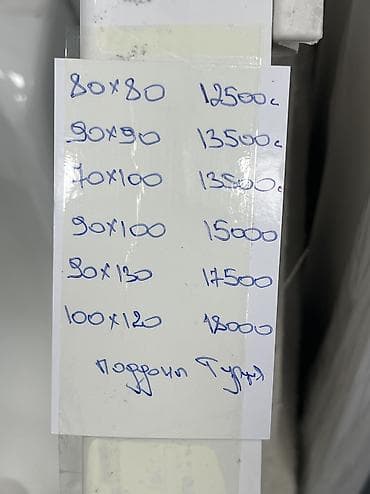 80x80 12500с
90x90 13500с
70x100 13500с
90x100 15000
90x130 17500
100x120 18000
поддоны Турция